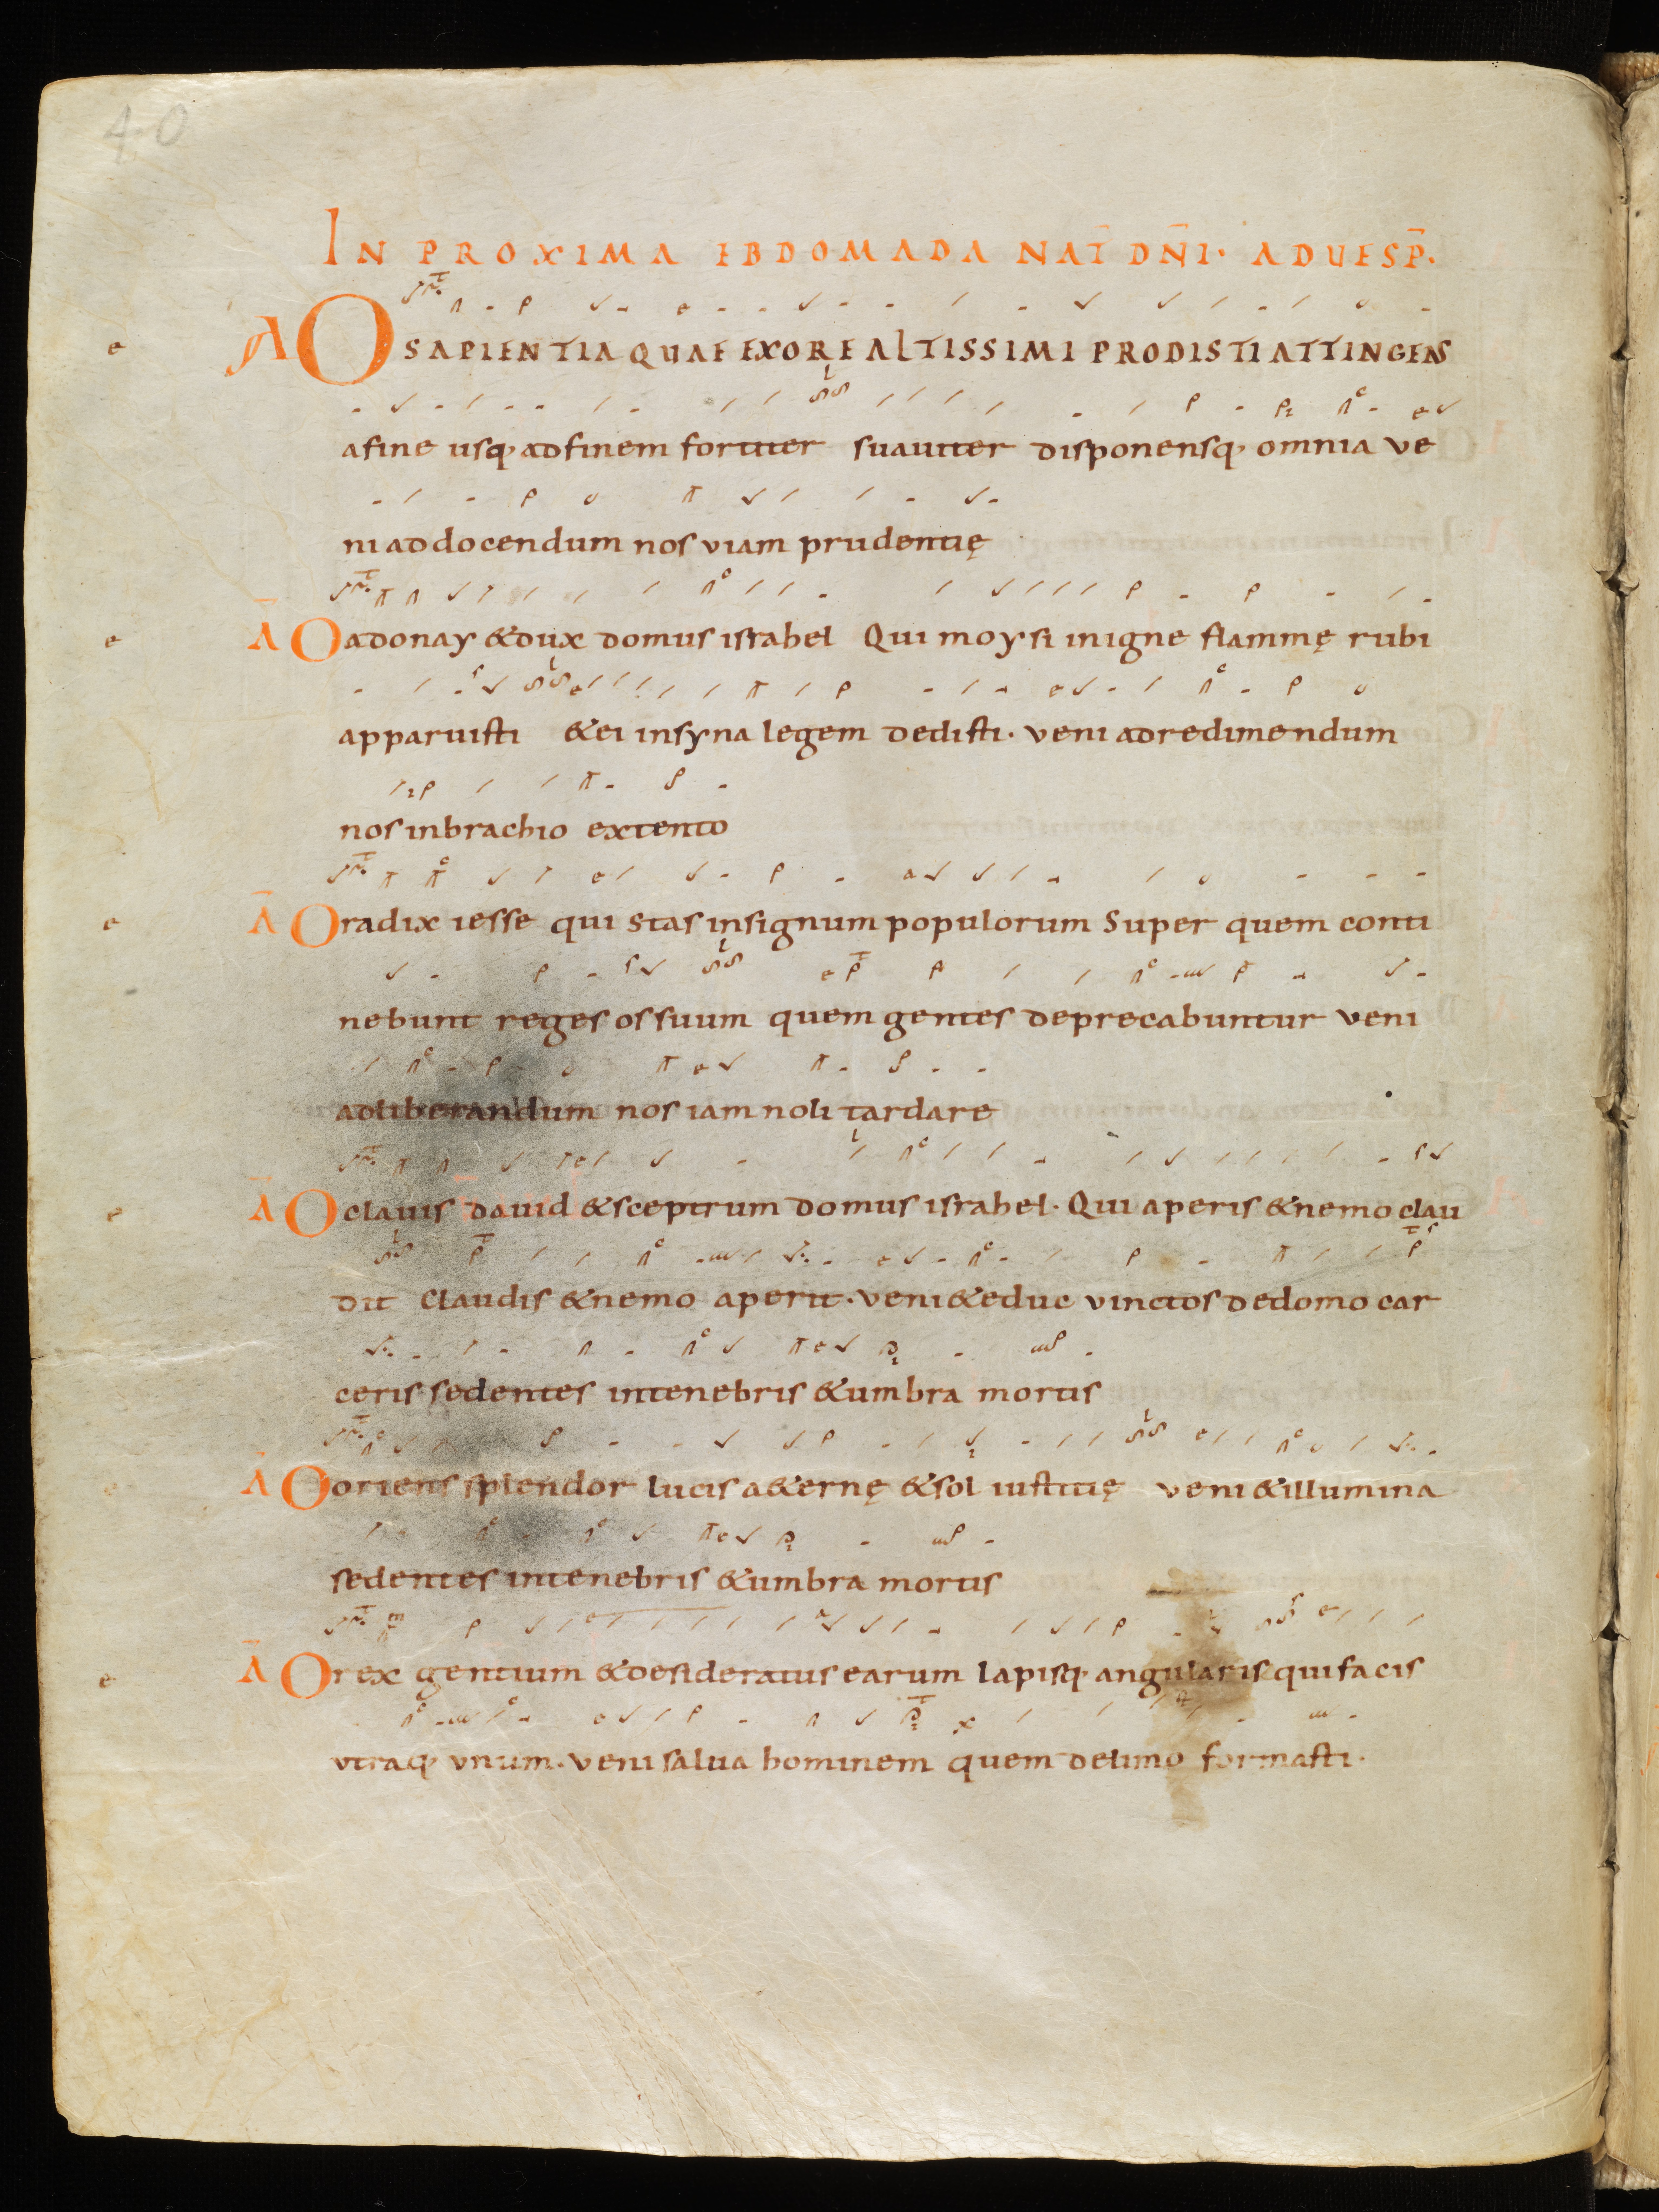 40
IN PROXIMA EBDOMADA NAT̄ DN̄I· AD UESP̄·
A O SAPIENTIA QUAE EX ORE ALTISSIMI PRODISTI ATTINGENS
a fine usq· ad finem fortiter suauiter disponensq· omnia ve
ni ad docendum nos viam prudentię
Ā O adonay & dux domus israhel Qui moysi in igne flammę rubi
apparuisti & ei in syna legem dedisti· veni ad redimendum
nos in brachio extento
Ā O radix iesse qui stas in signum populorum Super quem conti
nebunt reges os suum quem gentes deprecabuntur veni
ad liberandum nos iam noli tardare
Ā O clauis dauid & sceptrum domus israhel· Qui aperis & nemo clau
dit Claudis & nemo aperit· veni & educ vinctos de domo car
ceris sedentes in tenebris & umbra mortis
Ā O oriens splendor lucis a&ernę & sol iustitię veni & illumina
sedentes in tenebris & umbra mortis
Ā O rex gentium & desideratus earum lapisq· angularis qui facis
vtraq· vnum· veni salua hominem quem de limo formasti·